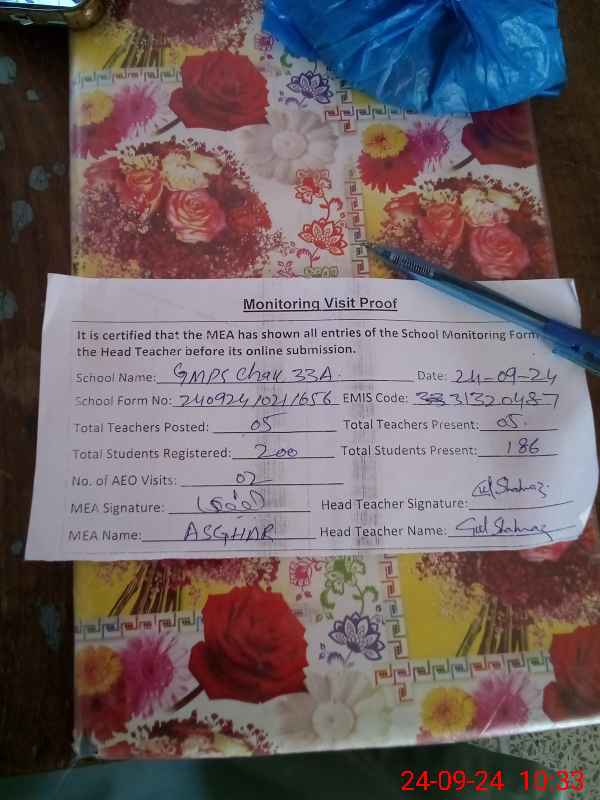 Monitoring Visit Proof
It is certified that the MEA has shown all entries of the School Monitoring Form
the Head Teacher before its online submission.
School Name: GMPS Chak 33A. Date: 24-09-24
School Form No: 240924102111656 EMIS Code: 31320487
Total Teachers Posted: 05 Total Teachers Present: 05.
Total Students Registered: 200 Total Students Present: 186
No. of AEO Visits: 02
MEA Signature: Head Teacher Signature: Gul Shahnaz
MEA Name: ASGHAR Head Teacher Name: Gul Shahnaz
24-09-24 10:33